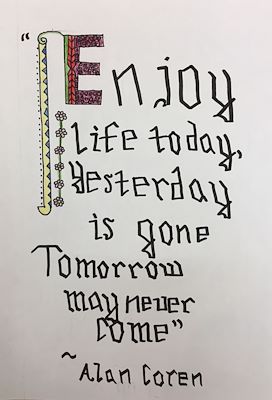 "Enjoy
Life today,
Yesterday
is gone
Tomorrow
may never
come"
~ Alan Coren